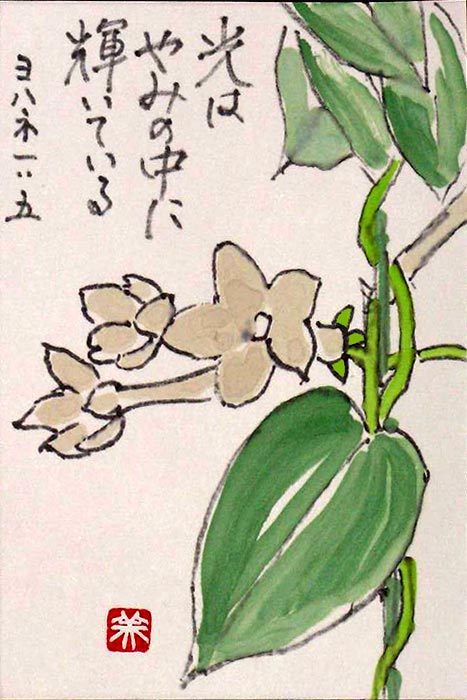 光は
やみの中に
輝いている
ヨハネ一:五